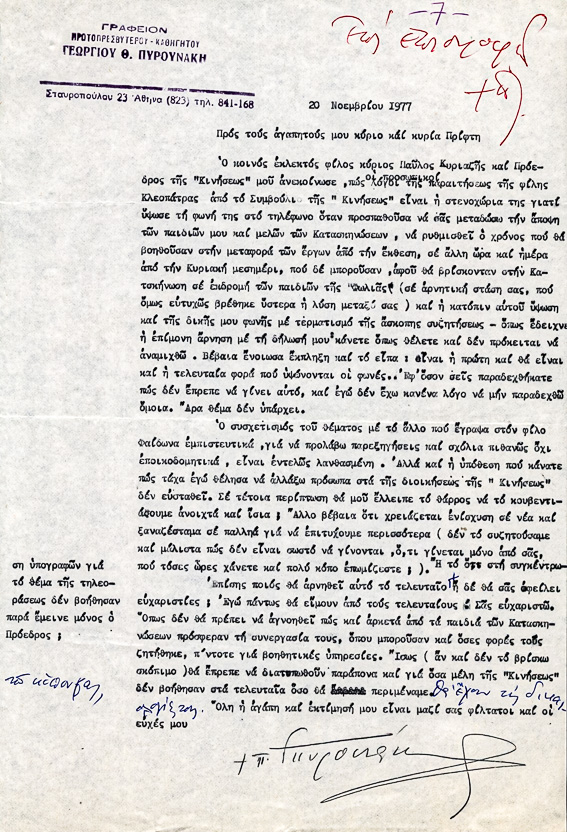 - 7 -
ΓΡΑΦΕΙΟΝ
ΠΡΩΤΟΠΡΕΣΒΥΤΕΡΟΥ - ΚΑΘΗΓΗΤΟΥ
ΓΕΩΡΓΙΟΥ Θ. ΠΥΡΟΥΝΑΚΗ
Σταυροπούλου 23 Ἀθῆνα (823) τηλ. 841-168
20 Νοεμβρίου 1977
Πρός τούς ἀγαπητούς μου κύριο καί κυρία Πρίφτη
Ὁ κοινός ἐκλεκτός φίλος κύριος Παῦλος Κυριαζῆς καί Πρόε-
δρος τῆς "Κινήσεως" μοῦ ἀνεκοίνωσε ,πώς οἱ προσωπικοί λόγοι τῆς παραιτήσεως τῆς φίλης
Κλεοπάτρας ἀπό τό Συμβούλιο τῆς " Κινήσεως" εἶναι ἡ στενοχώρια της γιατί
ὕψωσε τή φωνή της στό τηλέφωνο ὅταν προσπαθοῦσα νά σᾶς μεταδώσω τήν ἄποψη
τῶν παιδιῶν μου καί μελῶν τῶν Κατασκηνώσεων , νά ρυθμισθεῖ ὁ χρόνος πού θά
βοηθοῦσαν στήν μεταφορά τῶν ἔργων ἀπό τήν ἔκθεση, σέ ἄλλη ὥρα καί ἡμέρα
ἀπό τήν Κυριακή μεσημέρι, πού δέ μποροῦσαν ,ἀφοῦ θά βρίσκονταν στήν Κα-
τασκήνωση σέ ἐκδρομή τῶν παιδιῶν τῆς "Φωλιᾶς" (σέ ἀρνητική στάση σας, πού
ὅμως εὐτυχῶς βρέθηκε ὕστερα ἡ λύση μεταξύ σας ) καί ἡ κατόπιν αὐτοῦ ὕψωση
καί τῆς δικῆς μου φωνῆς μέ τερματισμό τῆς ἄσκοπης συζητήσεως - ὅπως ἔδειχνε
ἡ ἐπίμονη ἄρνηση μέ τή δήλωσή μου κάνετε ὅπως θέλετε καί δέν πρόκειται νά
ἀναμιχθῶ . Βέβαια ἔνοιωσα ἔκπληξη καί τό εἶπα : εἶναι ἡ πρώτη καί θά εἶναι
καί ἡ τελευταία φορά πού ὑψώνονται οἱ φωνές.. Ἐφ'ὅσον σεῖς παραδεχθήκατε
πώς δέν ἔπρεπε νά γίνει αὐτό, καί ἐγώ δέν ἔχω κανένα λόγο νά μήν παραδεχθῶ
ὅμοια. Ἄρα θέμα δέν ὑπάρχει.
Ὁ συσχετισμός τοῦ θέματος μέ τό ἄλλο πού ἔγραψα στόν φίλο
Φαίδωνα ἐμπιστευτικά ,γιά νά προλάβω παρεξηγήσεις καί σχόλια πιθανῶς ὄχι
ἐποικοδομητικά , εἶναι ἐντελῶς λανθασμένη . Ἀλλά καί ἡ ὑπόθεση πού κάνατε
πώς τάχα ἐγώ θέλησα νά ἀλλάξω πρόσωπα στά τῆς διοικήσεως τῆς " Κινήσεως"
δέν εὐσταθεῖ. Σέ τέτοια περίπτωση θά μοῦ ἔλλειπε τό θάρρος νά τό κουβεντι-
άσουμε ἀνοιχτά καί ἴσια ; Ἄλλο βέβαια ὅτι χρειάζεται ἐνίσχυση σέ νέα καί
ξαναζέσταμα σέ παλληά γιά νά ἐπιτύχουμε περισσότερα ( δέν τό συζητούσαμε
καί μάλιστα πώς δέν εἶναι σωστό νά γίνονται ,ὅ,τι γίνεται μόνο ἀπό σᾶς,
πού τόσες ὧρες χάνετε καί πολύ κόπο ἐπωμίζεστε ; ). Ἤ τό ὅτι στή συγκέντρω-
ση ὑπογραφῶν γιά
τό θέμα τῆς τηλεο-
ράσεως δέν βοήθησαν
παρά ἔμεινε μόνος ὁ
Πρόεδρος ;
Ἐπίσης ποιός θά ἀρνηθεῖ αὐτό τό τελευταῖο ἤ δέ θά σᾶς ὀφείλει
εὐχαριστίες ; Ἐγώ πάντως θά εἴμουν ἀπό τούς τελευταίους . Σᾶς εὐχαριστῶ.
Ὅπως δέν θά πρέπει νά ἀγνοηθεῖ πώς καί ἀρκετά ἀπό τά παιδιά τῶν Κατασκη-
νώσεων πρόσφεραν τή συνεργασία τους, ὅπου μποροῦσαν καί ὅσες φορές τούς
ζητήθηκε, π'ντοτε γιά βοηθητικές ὑπηρεσίες. Ἴσως ( ἄν καί δέν τό βρίσκω
σκόπιμο )θά ἔπρεπε νά διατυπωθοῦν παράπονα καί γιά ὅσα μέλη τῆς "Κινήσεως"
δέν βοήθησαν στά τελευταῖα ὅσο θά περιμέναμε. Θά ἔχουν τίς δικαι-
ολογίες των. Ὅλη ἡ ἀγάπη καί ἐκτίμησή μου εἶναι μαζί σας φίλτατοι καί οἱ
εὐχές μου
+ π. Γ. Πυρουνάκης